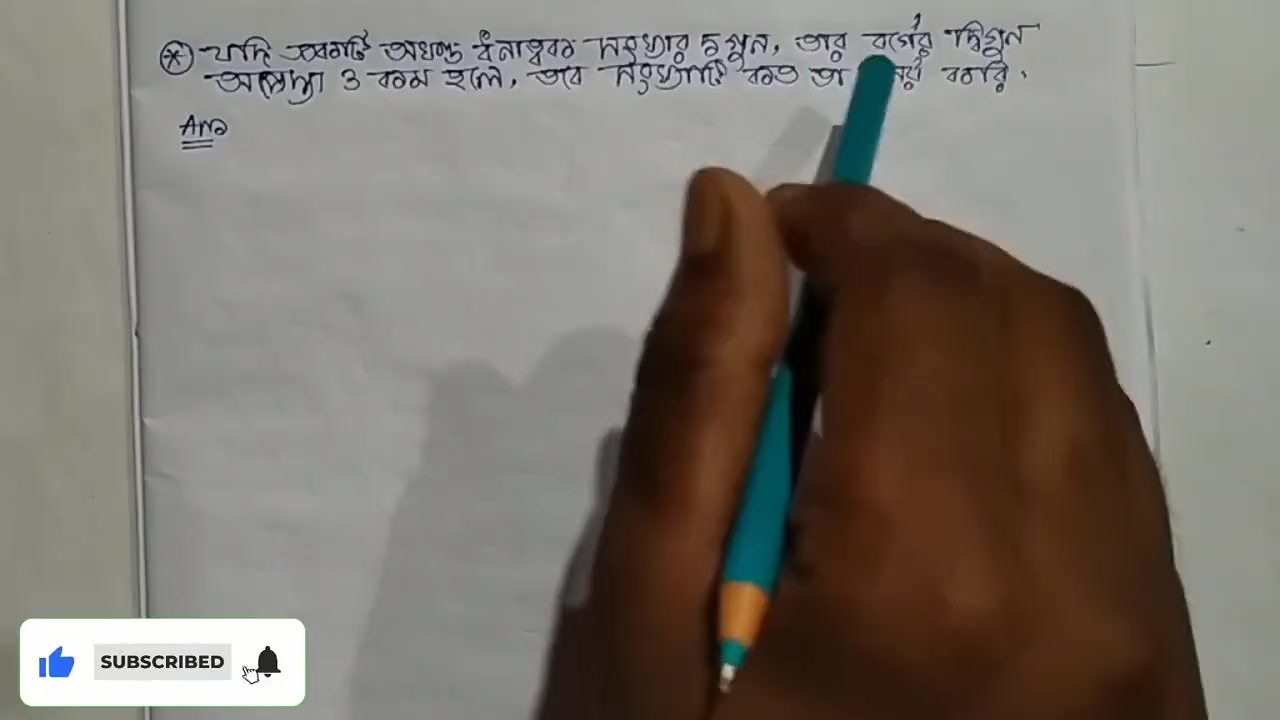 যদি একটি অখণ্ড ধনাত্মক সংখ্যার ৫ গুন, তার বর্গের দ্বিগুন
অপেক্ষা ৩ কম হলে, তবে সংখ্যাটি কত তা করি।
Ans
SUBSCRIBED